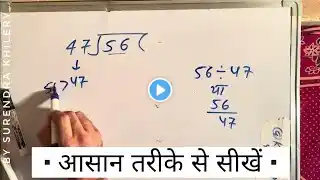 BY SURENDRA KHILERY
47)56(
↓
47
56 ÷ 47
या
56
47
▪ आसान तरीके से सीखें ▪